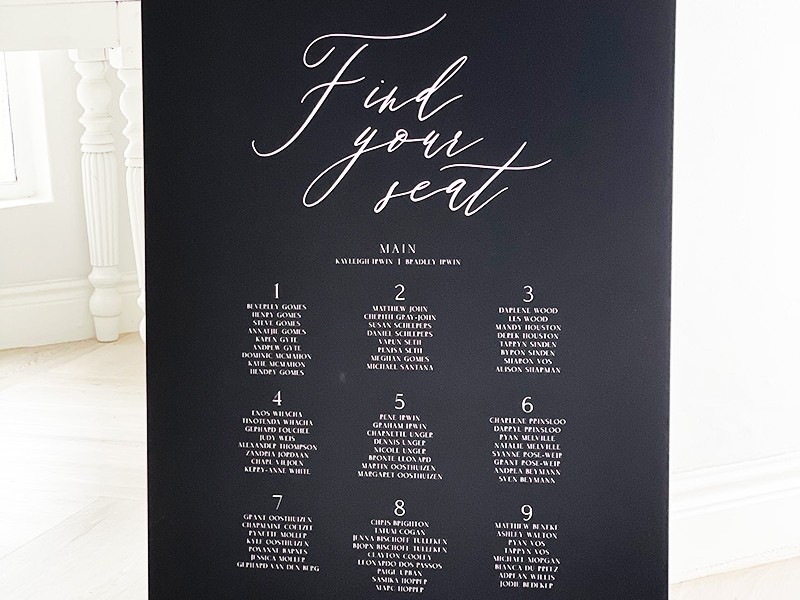 Find
your
seat
MAIN
KAYLEIGH IRWIN | BRADLEY IRWIN
1
BEVERLEY GOMES
HENRY GOMES
STEVE GOMES
ANNATJIE GOMES
KAREN GYTE
ANDREW GYTE
DOMINIC MCMAHON
KATIE MCMAHON
HENDRY GOMES
2
MATTHEW JOHN
CHERITH GRAY-JOHN
SUSAN SCHEEPERS
DANIEL SCHEEPERS
VARUN SETH
PENISA SETH
MEGHAN GOMES
MICHAEL SANTANA
3
DARLENE WOOD
LES WOOD
MANDY HOUSTON
DEREK HOUSTON
TARRYN SINDEN
BYRON SINDEN
SHARON VOS
ALISON SHAPMAN
4
ENOS WHACHA
TINOTENDA WHACHA
GERHARD FOUCHEE
JUDY WEIS
ALEXANDER THOMPSON
ZANDRIA JORDAAN
CHARL VILJOEN
KERRY-ANNE WHITE
5
RENE IRWIN
GRAHAM IRWIN
CHARNETTE UNGER
DENNIS UNGER
NICOLE UNGER
BRONTE LEONARD
MARTIN OOSTHUIZEN
MARGARET OOSTHUIZEN
6
CHARLENE PRINSLOO
DARRYL PRINSLOO
RYAN MELVILLE
NATALIE MELVILLE
SYANNE ROSE-WEIR
GRANT ROSE-WEIR
ANDREA BEYMANN
SVEN BEYMANN
7
GRANT OOSTHUIZEN
CHARMAINE COETZEE
RYNETTE MOLLER
KYLE OOSTHUIZEN
ROXANNE BARNES
JESSICA MOLLER
GERHARD VAN DEN BERG
8
CHRIS BRIGHTON
TATUM COGAN
JENNA BISCHOFF TULLEKEN
BJORN BISCHOFF TULLEKEN
CLAYTON COOLEY
LEONARDO DOS PASSOS
PAIGE URBAN
SASHKA HOPPER
MARC HOPPER
9
MATTHEW
ASHLEY WALTON
RYAN VOS
TARRYN VOS
MICHAEL MORGAN
BIANCA DU PREEZ
ADREAN WILLIS
JODIE BEDEKER